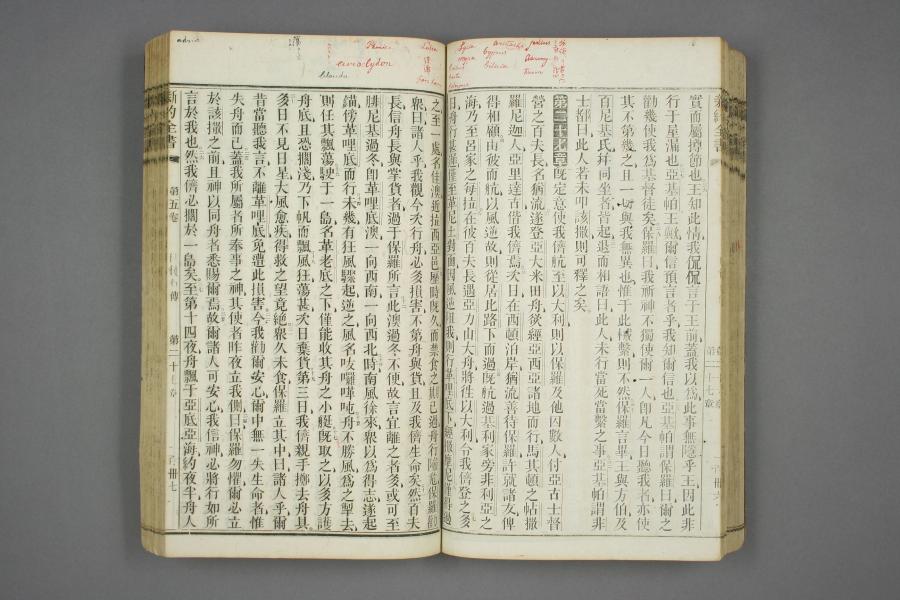 實而屬撙節也王知此情我侃侃言于王前蓋我以爲此事無隱乎王因此非
行于星漏也亞基帕王歟爾信預言者乎我知爾信也亞基帕謂保羅曰爾之
勸幾使我爲基督徒矣保羅曰我祈神不獨使爾一人卽凡今日聽我者亦使
其不第幾之且一切與我無異也惟于此縲絏則不然保羅言畢王與方伯及
百尼基氏幷同坐者皆起退而相語曰此人未行當死當繫之事亞基帕謂非
士都曰此人若未叩該撒則可釋之矣
第二十七章旣定意使我儕航至以大利則以保羅及他因數人付亞古士督
營之百夫長名猶流遂登亞大米田舟欲經亞西亞諸地而行馬其頓之帖撒
羅尼迦人亞里達古偕我儕焉次日在西頓泊岸猶流善待保羅許就諸友俾
得相顧由彼而航以風逆故則從居比路下而過旣航過基利家旁非利亞之
海乃至呂家之每拉在彼百夫長遇亞力山大舟將往以大利令我儕登之多
日舟行甚遲僅至革尼土對面因風逆阻我則行革哩底下
之至一處名佳澳近拉西亞邑歷時旣久而禁食之期已過舟行險危保羅勸
衆曰諸人乎我觀今次行舟必多損害不第舟與貨且及我儕生命矣然百夫
長信舟長與掌貨者過于保羅所言此澳過冬不便故言宜離之者多或可至
腓尼基過冬卽革哩底澳一向西南一向西北時南風徐來衆以爲得志遂起
錨傍革哩底而行未幾有狂風驟起逆之風名吱囉嘩吨舟不勝風爲之掣去
則任其飄蕩駛于一島名革老底之下僅能收其舟之小艇旣取之以多方護
舟底且恐擱淺乃下帆而飄風狂蕩甚次日棄貨第三日我儕親手擲去舟具
多日不見日星大風愈疾得救之望竟絕衆久未食保羅立其中曰諸人乎爾
昔當聽我言不離革哩底免遭此損害今我勸爾安心爾中無一失生命者惟
失舟而已蓋我所屬者所奉事之神其使者昨夜立我側曰保羅勿懼爾必立
於該撒之前且神以同舟者悉賜爾焉故爾諸人可安心我信神必將行如所
言於我也然我儕必擱於一島矣至第十四夜舟飄于亞底亞海約夜半舟人
新約全書
第五卷
第二十七章
adria
Phenice
euroclydon
Clauda
Lycia
myra
Cyprus
Cilicia
Julius